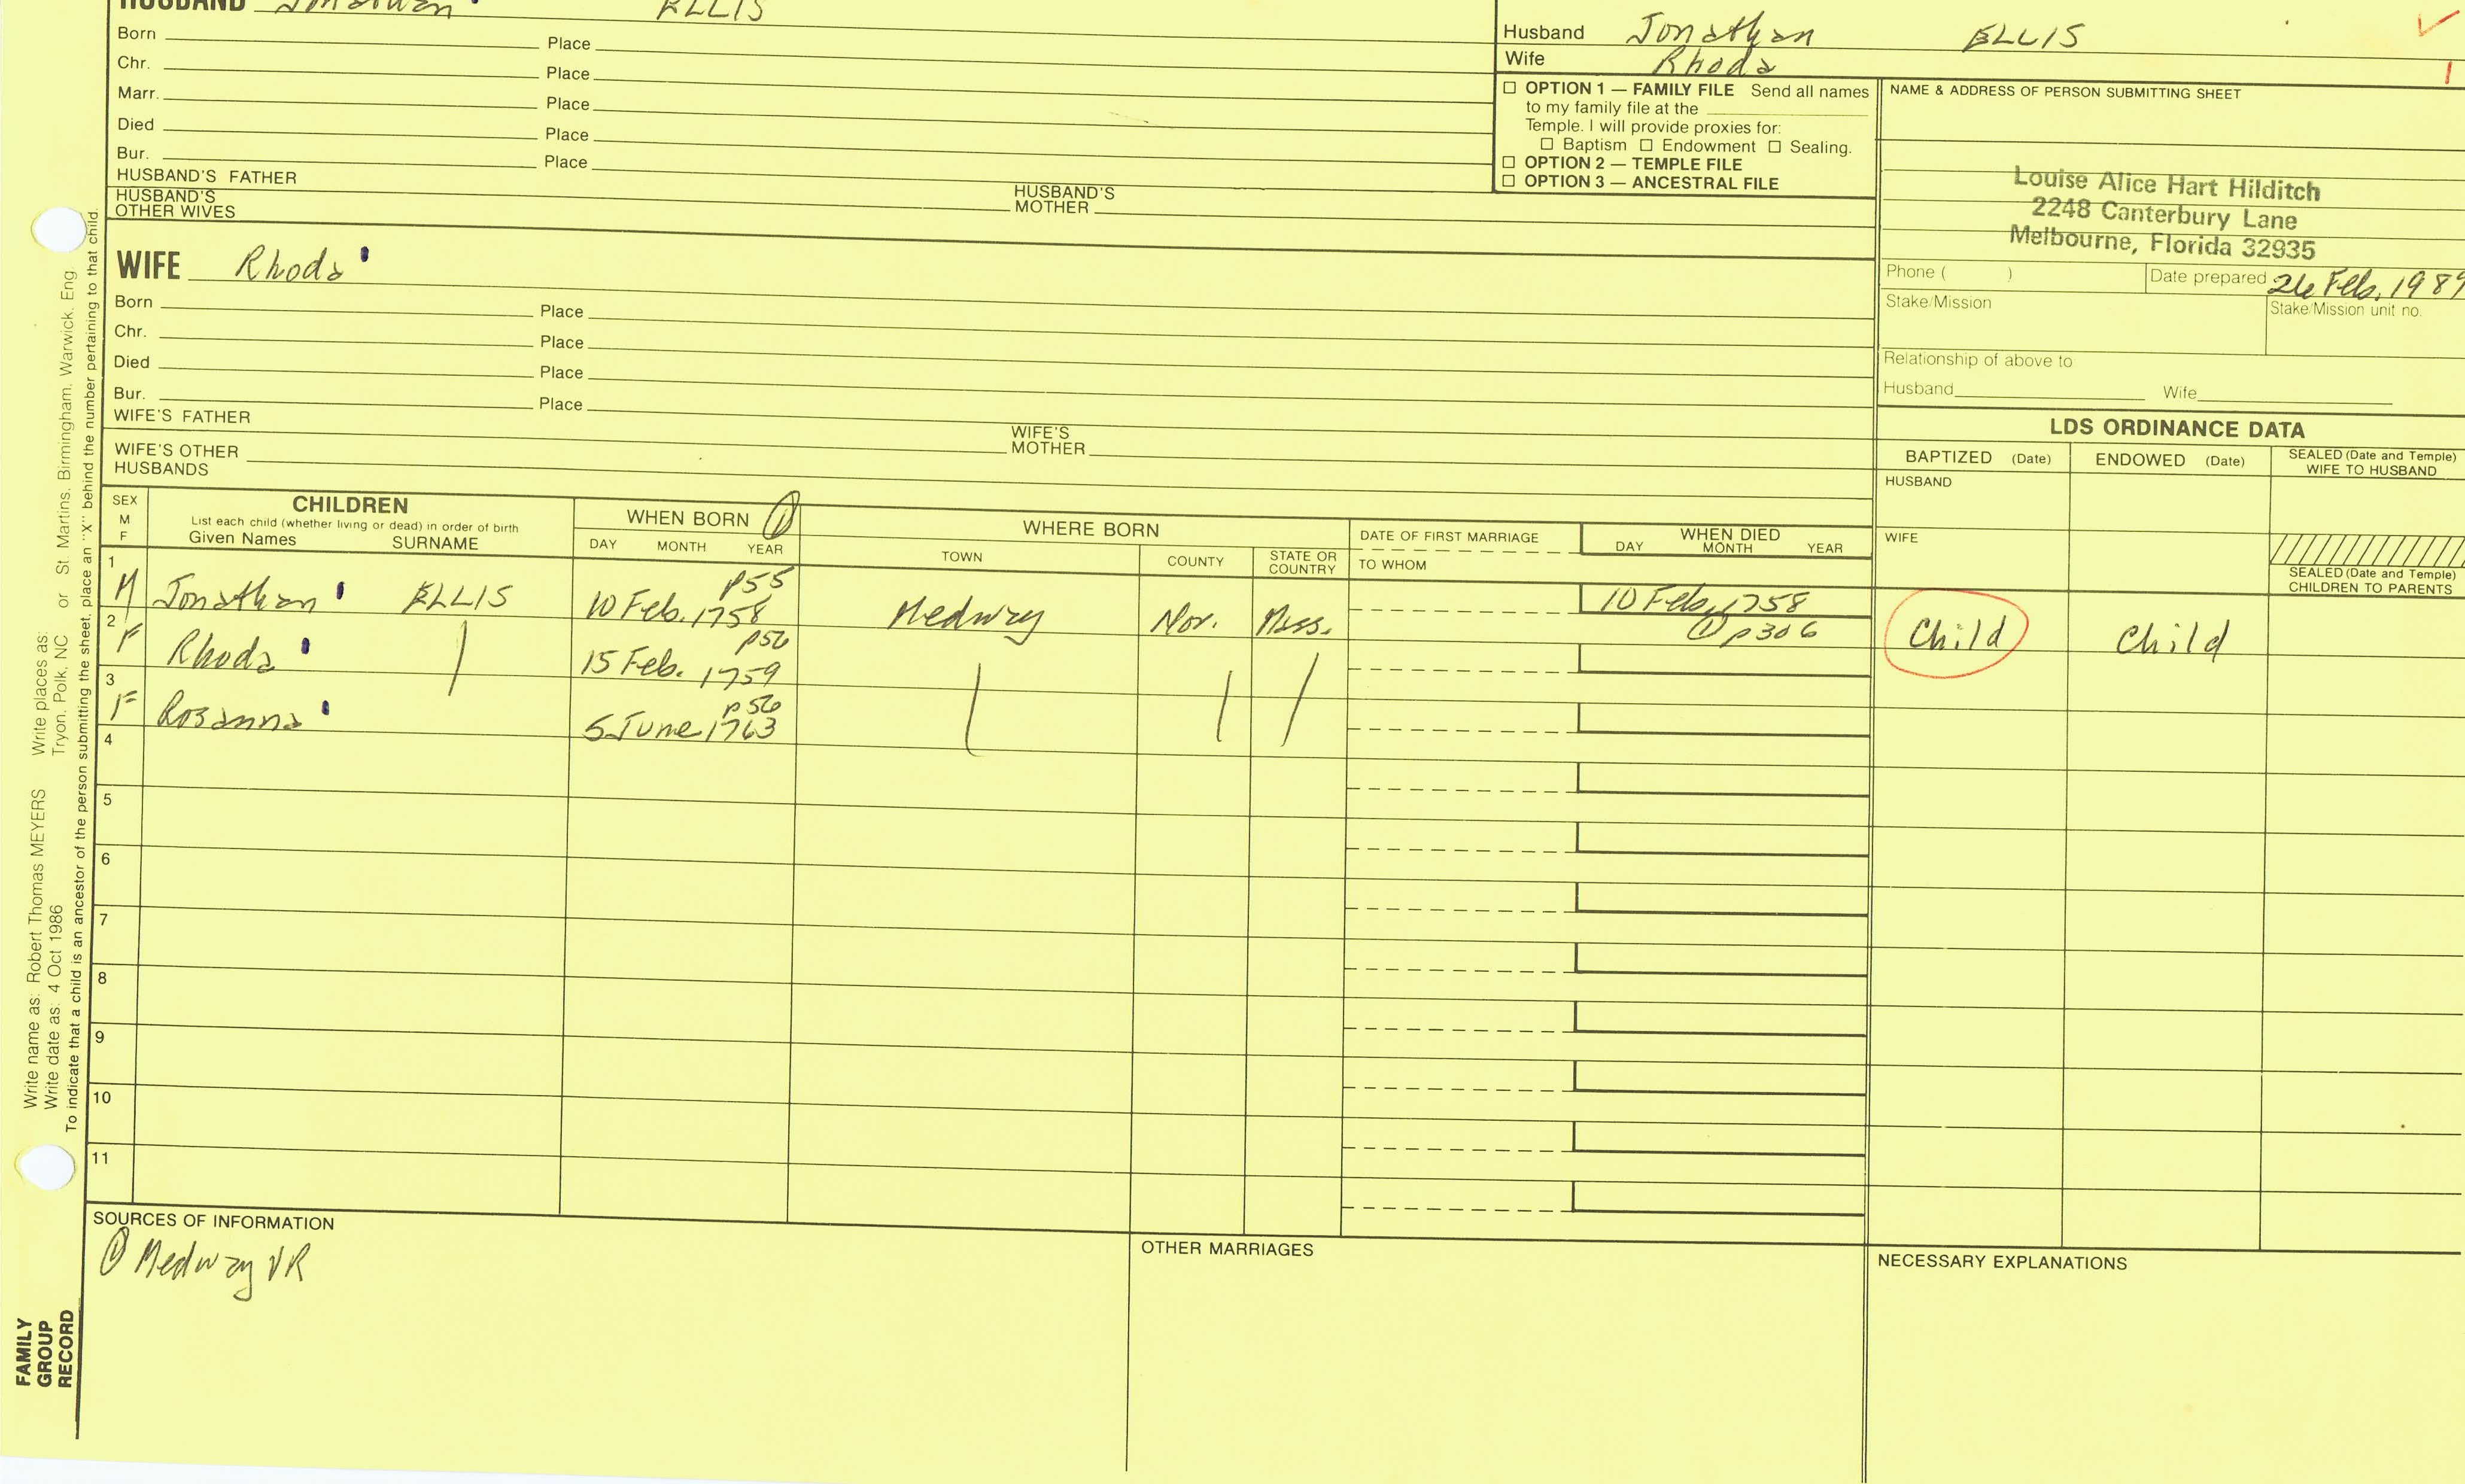 HUSBAND Jonathan ELLIS
Born Place
Chr. Place
Marr. Place
Died Place
Bur. Place
HUSBAND'S FATHER HUSBAND'S MOTHER
HUSBAND'S OTHER WIVES
WIFE Rhoda
Born Place
Chr. Place
Died Place
Bur. Place
WIFE'S FATHER WIFE'S MOTHER
WIFE'S OTHER HUSBANDS
Husband Jonathan ELLIS
Wife Rhoda
☐ OPTION 1 — FAMILY FILE Send all names
to my family file at the
Temple. I will provide proxies for:
☐ Baptism ☐ Endowment ☐ Sealing.
☐ OPTION 2 — TEMPLE FILE
☐ OPTION 3 — ANCESTRAL FILE
NAME & ADDRESS OF PERSON SUBMITTING SHEET
Louise Alice Hart Hilditch
2248 Canterbury Lane
Melbourne, Florida 32935
Phone ( ) Date prepared 26 Feb. 1989
Stake/Mission Stake/Mission unit no.
Relationship of above to
Husband Wife
LDS ORDINANCE DATA
BAPTIZED (Date) ENDOWED (Date) SEALED (Date and Temple) WIFE TO HUSBAND
HUSBAND
WIFE
SEALED (Date and Temple)
CHILDREN TO PARENTS
SEX M F
CHILDREN
List each child (whether living or dead) in order of birth
Given Names SURNAME
WHEN BORN ①
DAY MONTH YEAR
WHERE BORN
TOWN COUNTY STATE OR COUNTRY
DATE OF FIRST MARRIAGE
TO WHOM
WHEN DIED
DAY MONTH YEAR
p55
1 M Jonathan ELLIS 10 Feb. 1758 Medway Nor. Mass. 10 Feb. 1758 Child Child
① p306
p56
2 F Rhoda 15 Feb. 1759
p56
3 F Rosanna 5 June 1763
4
5
6
7
8
9
10
11
SOURCES OF INFORMATION
① Medway VR
OTHER MARRIAGES
NECESSARY EXPLANATIONS
FAMILY
GROUP
RECORD
Write name as: Robert Thomas MEYERS Write places as: 
Write date as: 4 Oct 1986 Tryon, Polk, NC or St. Martins, Birmingham, Warwick, Eng.
To indicate that a child is an ancestor of the person submitting the sheet, place an "X" behind the number pertaining to that child.